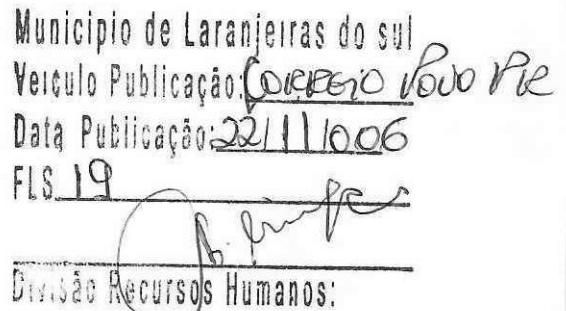 Municipio de Laranjeiras do sul
Veiculo Publicação: CORREIO POVO PR
Data Publicação: 22/11/006
FLS. 19
Divisão Recursos Humanos: